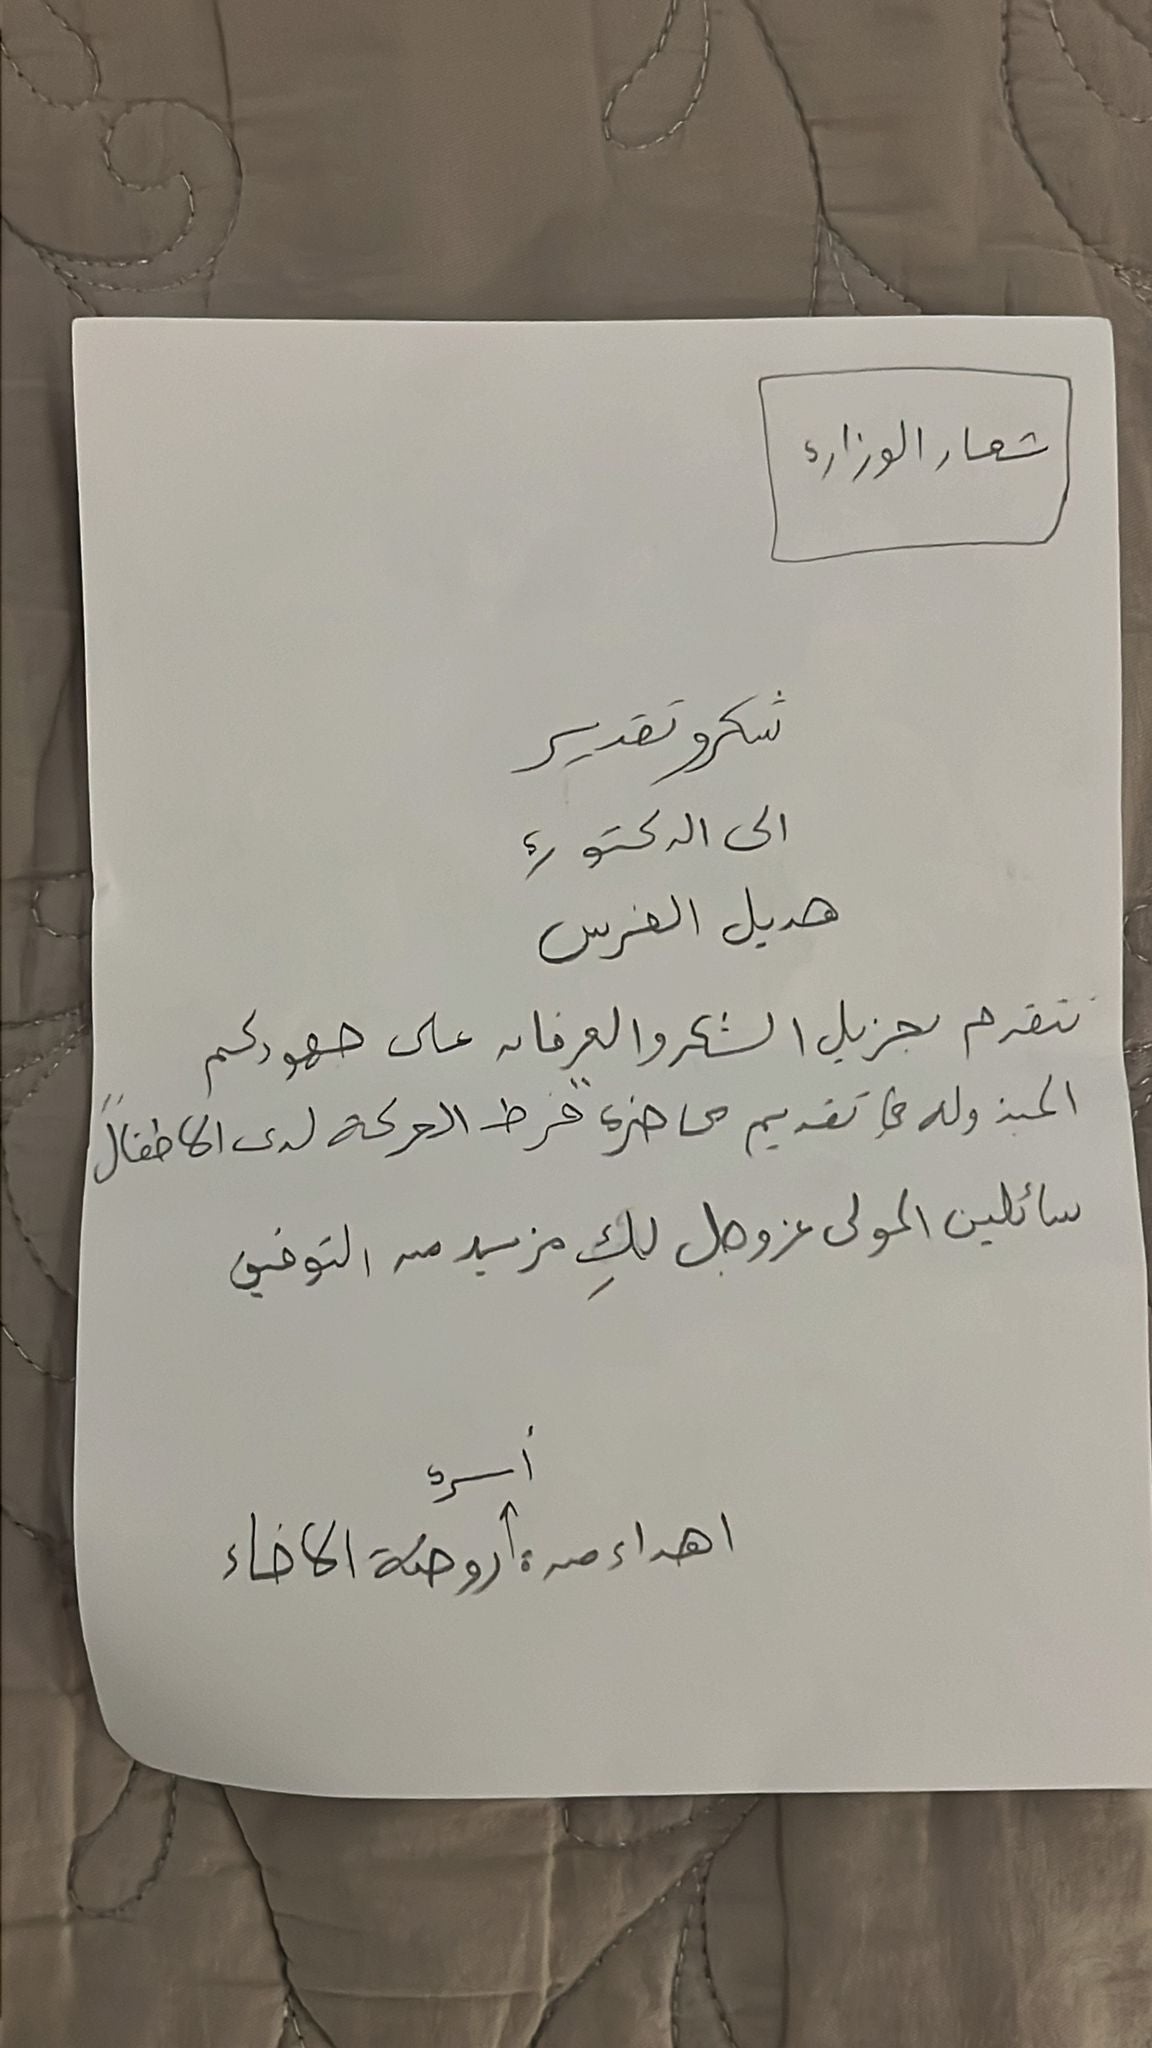 شعار الوزارة
شكر و تقدير
الى الدكتورة
هديل الفرس
نتقدم بجزيل الشكر والعرفان على جهودكم
المبذولة في تقديم محاضرة "فرط الحركة لدى الاطفال"
سائلين المولى عز وجل لكِ مزيد من التوفيق
أسرة
اهداء من روضة الاخاء